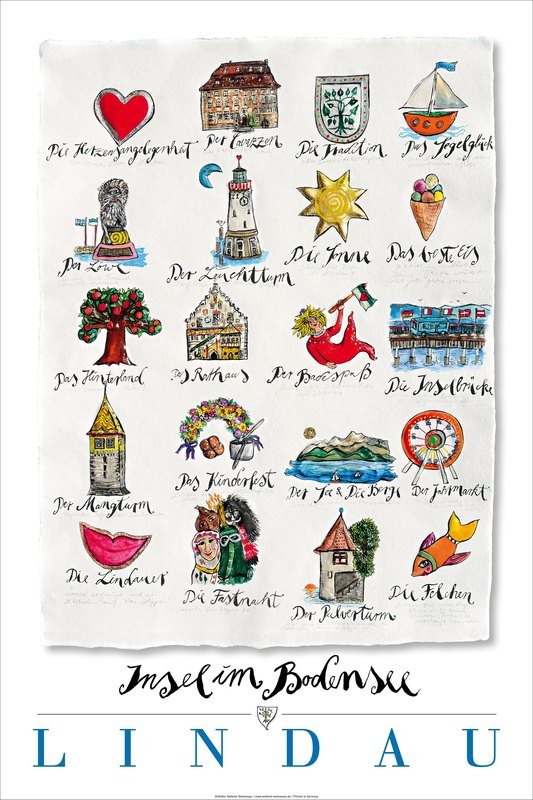 Die Herzensangelegenheit Der Cavazzen Die Tradition Das Segelglück
Der Löwe Der Leuchtturm Die Sonne Das beste Eis
Das Hinterland Das Rathaus Der Badespaß Die Inselbrücke
Der Mangturm Das Kinderfest Der See & Die Berge Der Jahrmarkt
Die Lindauer Die Fastnacht Der Pulverturm Die Felchen
Insel im Bodensee
LINDAU